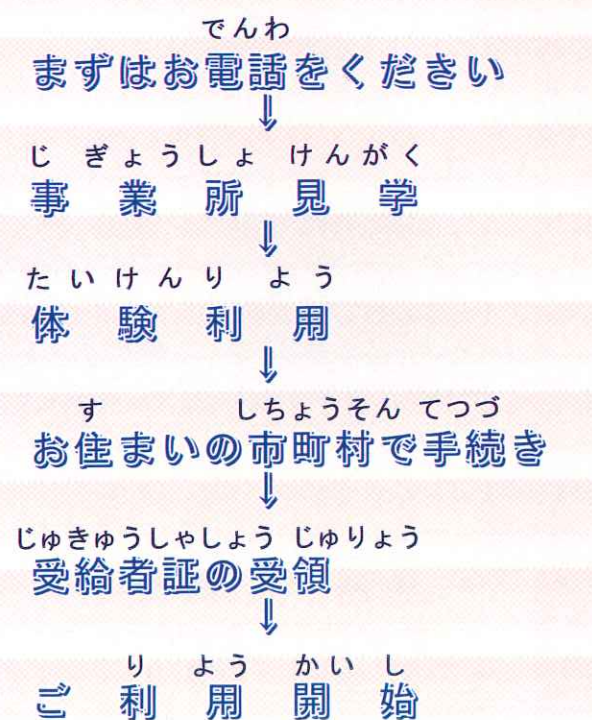 でんわ
まずはお電話をください
⇓
じぎょうしょ けんがく
事業所見学
⇓
たいけんりよう
体験利用
⇓
す しちょうそん てつづ
お住まいの市町村で手続き
⇓
じゅきゅうしゃしょう じゅりょう
受給者証の受領
⇓
りよう かいし
ご利用開始